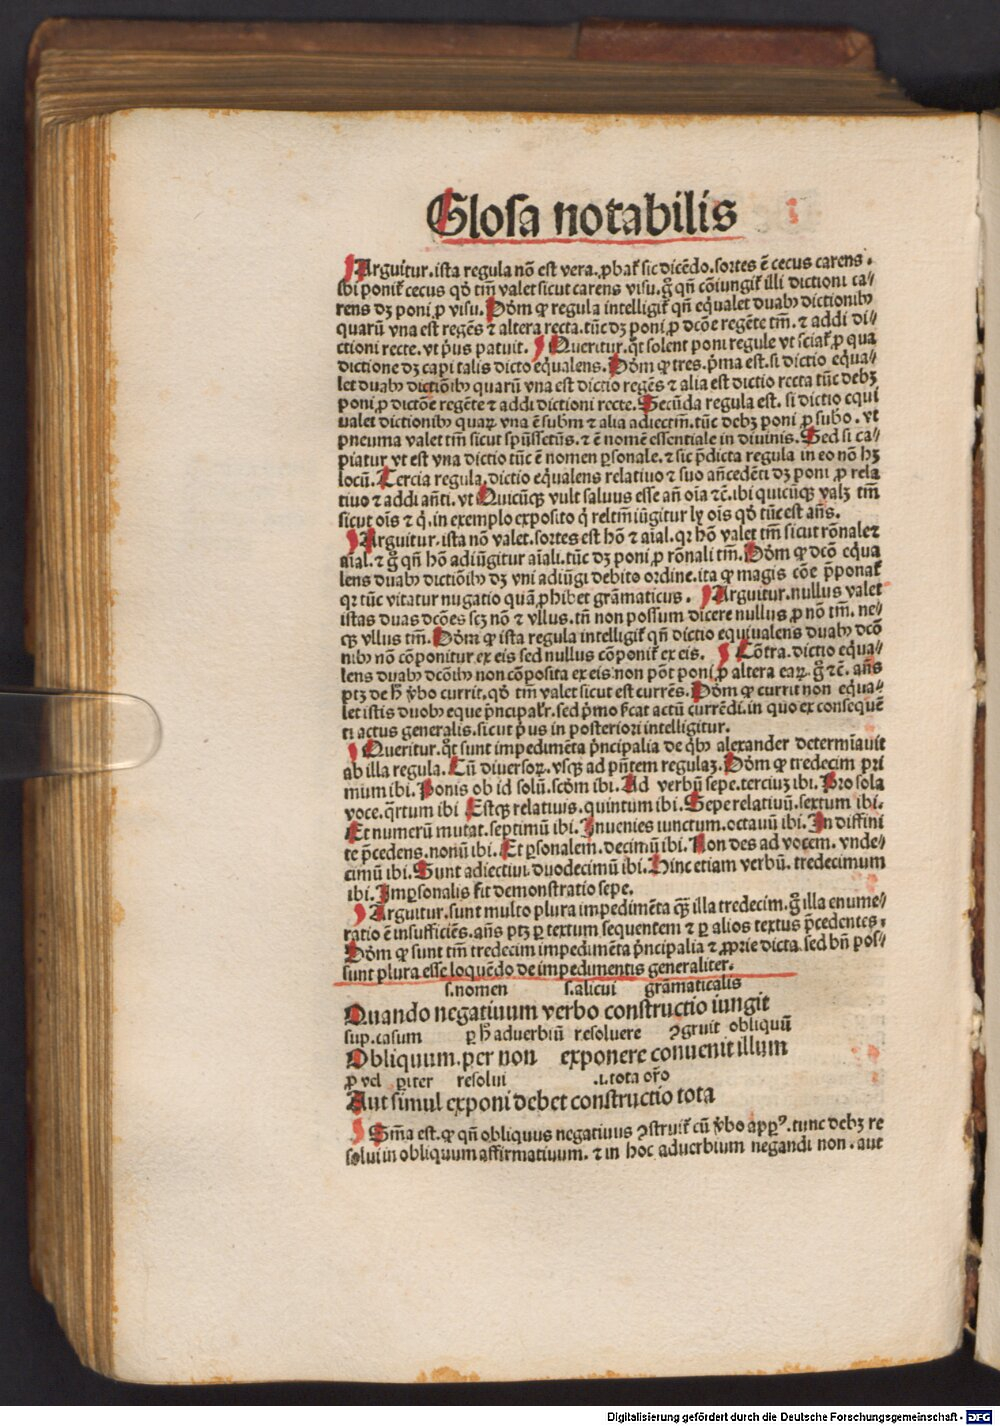 Glosa notabilis
Arguitur. ista regula nõ est vera. ꝓbať sic dicẽdo. sortes ẽ cecus carens.
ibi poniť cecus qđ tm̃ valet sicut carens visu. g̃ qñ cõiungiť illi dictioni ca-
rens dꝫ poni ꝓ visu. Dõm ꝙ regula intelligiť qñ eq̃ualet duabꝰ dictionibꝰ
quarũ vna est regẽs ⁊ altera recta. tũc dꝫ poni ꝓ dcõe regẽte tm̃. ⁊ addi di-
ctioni recte. vt p̃us patuit. Queritur. q̃t solent poni regule vt sciať ꝓ qua
dictione dꝫ capi talis dicto eq̃ualens. Dõm ꝙ tres. p̃ma est. si dictio eq̃ua-
let duabꝰ dictiõibꝰ quarũ vna est dictio regẽs ⁊ alia est dictio recta tũc debꝫ
poni ꝓ dictõe regẽte ⁊ addi dictioni recte. Secũda regula est. si dictio equi
ualet dictionibꝰ quaꝝ vna ẽ subm̃ ⁊ alia adiectm̃. tũc debꝫ poni ꝓ subo. vt
pneuma valet tm̃ sicut spũssctũs. ⁊ ẽ nomẽ essentiale in diuinis. Sed si ca-
piatur vt est vna dictio tũc ẽ nomen ꝑsonale. ⁊ sic p̃dicta regula in eo nõ hꝫ
locũ. Tercia regula. dictio eq̃ualens relatiuo ⁊ suo añcedẽti dꝫ poni ꝓ rela
tiuo ⁊ addi añti. vt Quicũqꝫ vult saluus esse añ oĩa ⁊c̃. ibi quicũqꝫ valꝫ tm̃
sicut oĩs ⁊ q̃. in exemplo exposito q̃ reltm̃ iũgitur ly oĩs qđ tũc est añs.
Arguitur. ista nõ valet. sortes est hõ ⁊ aĩal. qꝛ hõ valet tm̃ sicut rõnale ⁊
aĩal. ⁊ g̃ qñ hõ adiũgitur aĩali. tũc dꝫ poni ꝓ rõnali tm̃. Dõm ꝙ dcõ eq̃ua
lens duabꝰ dictiõibꝰ dꝫ vni adiũgi debito ordine. ita ꝙ magis cõe p̃ponať
qꝛ tũc vitatur nugatio quã ꝓhibet grãmaticus. Arguitur. nullus valet
istas duas dcões scꝫ nõ ⁊ vllus. tñ non possum dicere nullus ꝓ nõ tm̃. ne-
qꝫ vllus tm̃. Dõm ꝙ ista regula intelligiť qñ dictio equiualens duabꝰ dcõ
nibꝰ nõ cõponitur ex eis sed nullus cõponiť ex eis. Cõtra. dictio eq̃ua-
lens duabꝰ dcõibꝰ non cõposita ex eis non põt poni ꝓ altera eaꝝ. g̃ ⁊c̃. añs
ptꝫ de h̃ v̓bo currit. qđ tm̃ valet sicut est currẽs. Dõm ꝙ currit non eq̃ua-
let istis duobꝰ eque p̃ncipalr̃. sed p̃mo ſ̓cat actũ currẽdi. in quo ex consequẽ
ti actus generalis. sicut p̃us in posteriori intelligitur.
Queritur. q̃t sunt impedimẽta p̃ncipalia de q̃bꝰ alexander determĩauit
ab illa regula. Cũ diuersoꝝ. vsqꝫ ad pñtem regulaꝫ. Dõm ꝙ tredecim pri
mium ibi. Ponis ob id solũ. scõm ibi. Ad verbũ sepe. terciuꝫ ibi. Pro sola
voce. q̃rtum ibi Estqꝫ relatiuis. quintum ibi. Sepe relatiuũ. sextum ibi.
Et numerũ mutat. septimũ ibi. Inuenies iunctum. octauũ ibi. In diffini
te p̃cedens. nonũ ibi. Et ꝑsonalem. decimũ ibi. Non des ad vocem. vnde-
cimũ ibi. Sunt adiectiui. duodecimũ ibi. Hinc etiam verbũ. tredecimum
ibi. Imꝑsonalis fit demonstratio sepe.
Arguitur. sunt multo plura impedimẽta qꝫ̃ illa tredecim. g̃ illa enume-
ratio ẽ insufficiẽs. añs ptꝫ ꝑ textum sequentem ⁊ ꝑ alios textus p̃cedentes.
Dõm ꝙ sunt tm̃ tredecim impedimẽta p̃ncipalia ⁊ ꝓprie dicta. sed bñ pos-
sunt plura esse loquẽdo de impedimentis generaliter.
s. nomen s. alicui grãmaticalis
Quando negatiuum verbo constructio iungit
sup. casum ꝑ h̃ aduerbiũ resoluere ꝯgruit obliquũ
Obliquum. per non exponere conuenit illum
ꝓ vel ꝑiter resolui .i. tota or̃o
Aut simul exponi debet constructio tota
Sm̃a est. ꝙ qñ obliquus negatiuus ꝯstruiť cũ v̓bo apꝑꝰ. tunc debꝫ re
solui in obliquum affirmatiuum. ⁊ in hoc aduerbium negandi non. aut
Digitalisierung gefördert durch die Deutsche Forschungsgemeinschaft - DFG